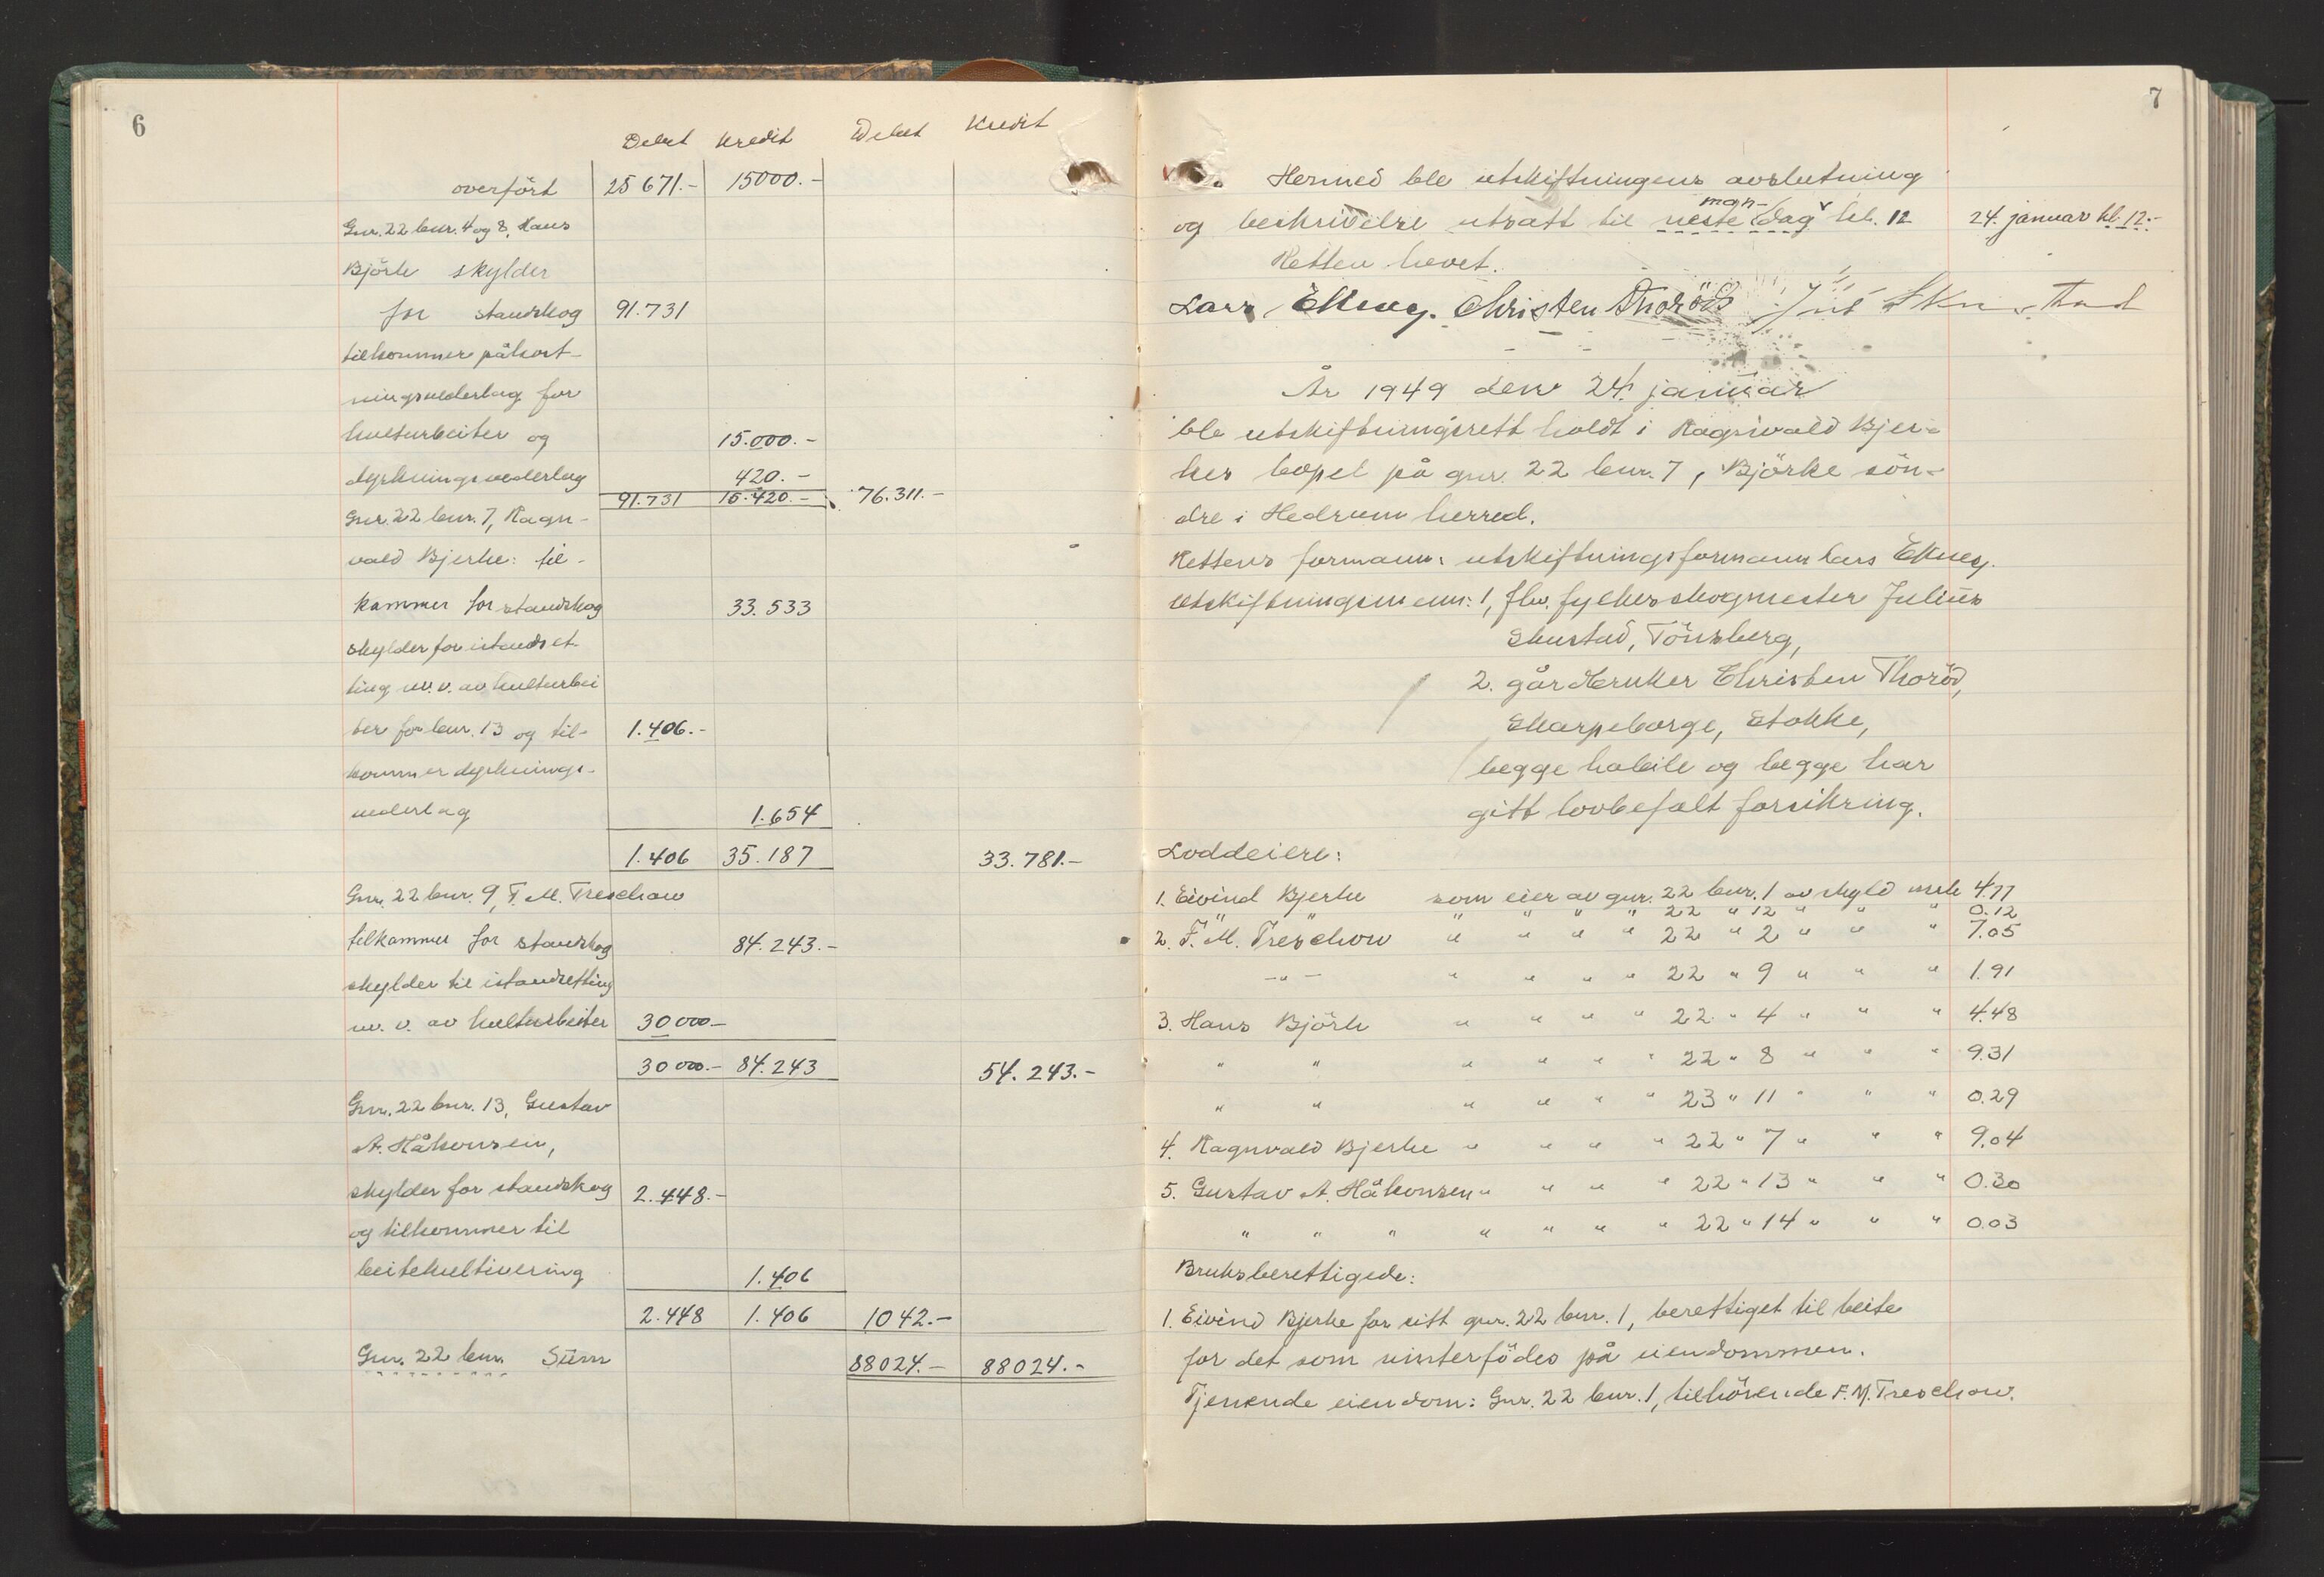 6
Debet Kredit Debet Kredit
overført 25 671.- 15000.-
Gnr. 22 bnr. 4 og 8, Hans
Björke skylder
for standskog 91.731
tilkommer påkost-
ningsvederlag for
kulturbeiter og 15.000.-
dyrkningsvederlag 420.-
91.731 15.420.- 76.311.-
Gnr. 22 bnr. 7, Ragn-
vald Bjerke: til-
kommer for standskog 33.533
skylder for istandset-
ting m.v. av kulturbei
ter for bnr. 13 og til- 1.406.-
kommer dyrknings-
vederlag 1.654
1.406 35.187 33.781.-
Gnr. 22 bnr. 9, F. M. Treschow
tilkommer for standskog 84.243.-
skylder til istandsetting
m. v. av kulturbeiter 30 000.-
30 000.- 84.243 54.243.-
Gnr. 22 bnr. 13, Gustav
A. Håkonsen,
skylder for standskog 2.448.-
og tilkommer til
beitekultivering 1.406
2.448 1.406 1042.-
Gnr. 22 bnr. Sum 88024.- 88024.-
7
Hermed ble utskiftningens avslutning
man-
og beskrivelse utsatt til neste dag kl. 12 24. januar kl. 12.-
Retten hevet.
Lars Elkney. Christen Thoröd
År 1949 den 24. januar
ble utskiftningsrett holdt i Ragnvald Bjer-
kes bopel på gnr. 22 bnr. 7, Björke sön-
dre i Hedrum herred.
Rettens formann: utskiftningsformann Lars Elkney.
Utskiftningsmenn: 1, fhv. fylkesskogmester Julius
Skustad, Tönsberg,
2. gårdbruker Christen Thoröd,
Skarpeborge, Stokke,
begge habile og begge har
gitt lovbefalt forsikring.
Loddeiere:
1. Eivind Bjerke som eier av gnr. 22 bnr. 1 av skyld mrk 4.77
" " " " " " 22 " 12 " " " 0.12
2. F. M. Treschow " " " " 22 " 2 " " " 7.05
-"- " " " " 22 " 9 " " " 1.91
3. Hans Björke " " " " 22 " 4 " " " 4.48
" " " " " " 22 " 8 " " " 9.31
" " " " " " 23 " 11 " " " 0.29
4. Ragnvald Bjerke " " " " 22 " 7 " " " 9.04
5. Gustav A. Håkonsen " " " " 22 " 13 " " " 0.30
" " " " " " " 22 " 14 " " " 0.03
Bruksberettigede:
1. Eivind Bjerke for sitt gnr. 22 bnr. 1, berettiget til beite
for det som vinterfödes på eiendommen.
Tjenende eiendom: Gnr. 22 bnr. 1, tilhörende F. M. Treschow.